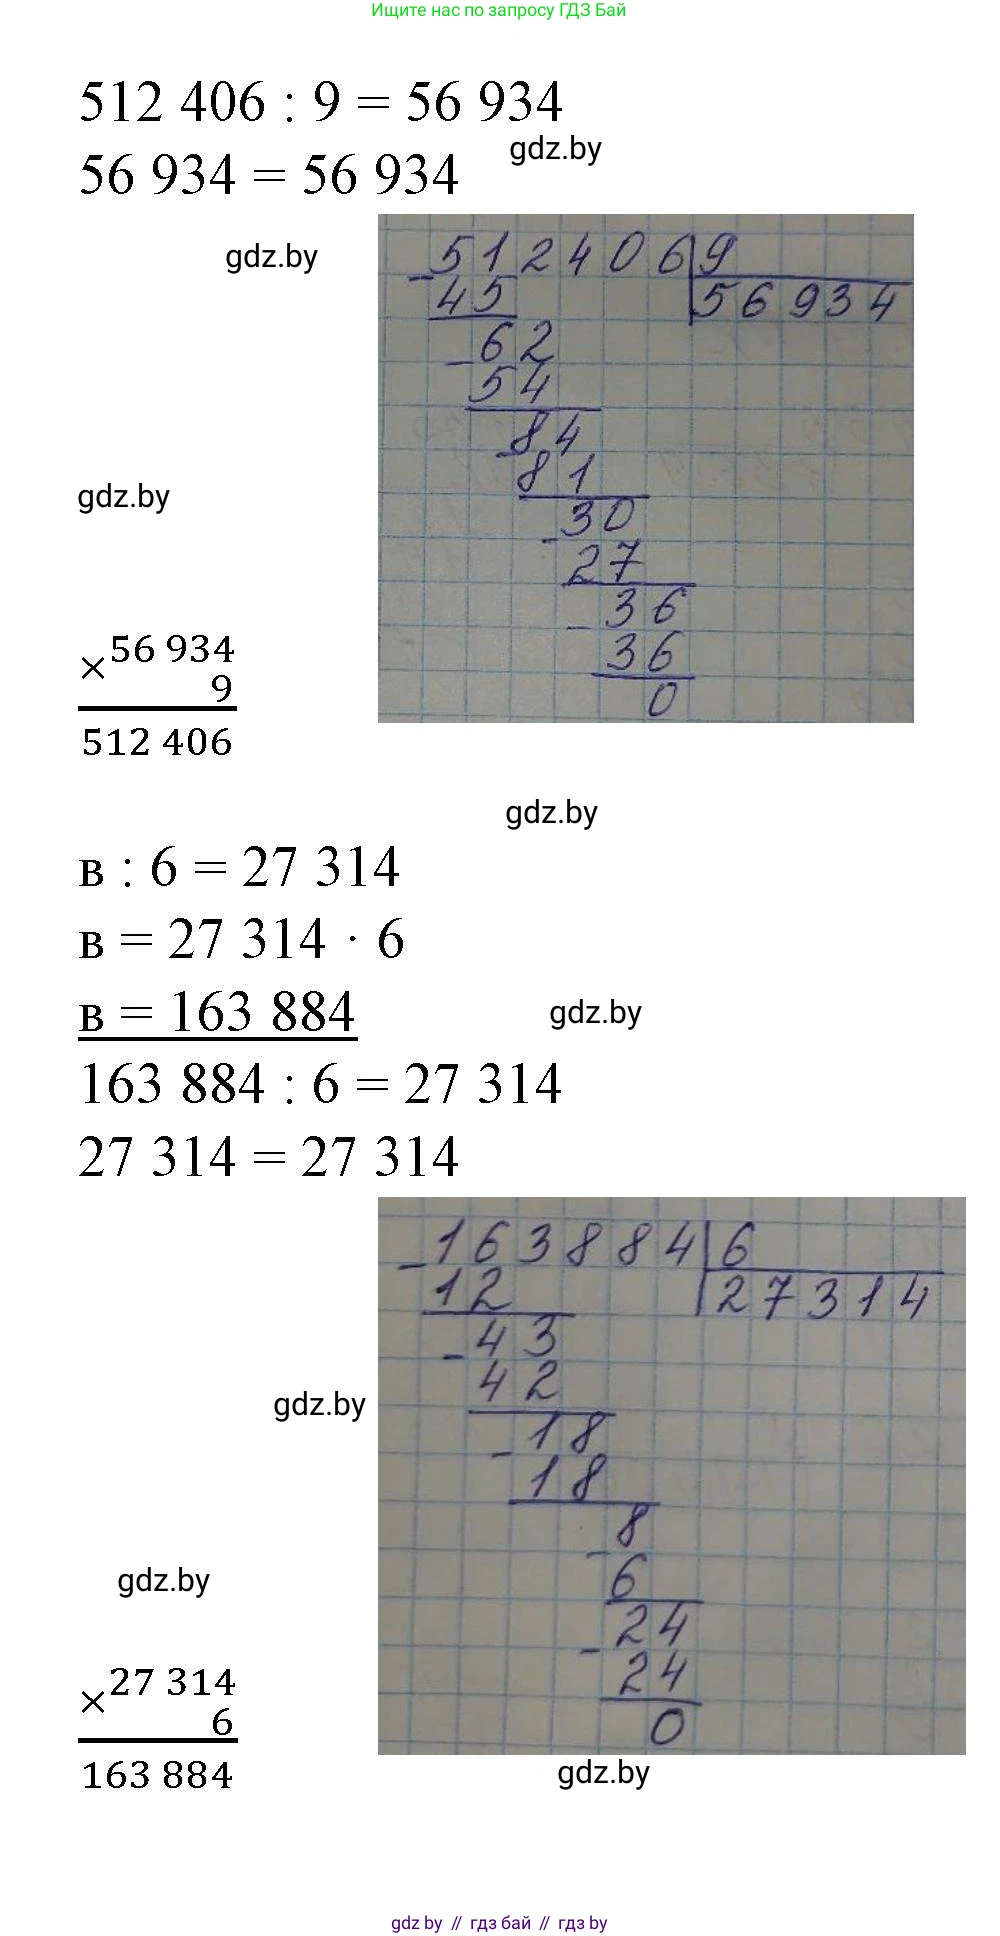 Ищите нас по запросу ГДЗ Бай
512 406 : 9 = 56 934
56 934 = 56 934
gdz.by
gdz.by
512406 9
- 45 56934
- 62
54
- 84
81
- 30
27
- 36
36
0
gdz.by
× 56 934
9
512 406
gdz.by
в : 6 = 27 314
в = 27 314 · 6
в = 163 884
gdz.by
163 884 : 6 = 27 314
27 314 = 27 314
- 163884 6
12 27314
- 43
42
- 18
18
- 8
6
- 24
24
0
gdz.by
gdz.by
× 27 314
6
163 884
gdz.by
gdz by // гдз бай // гдз by